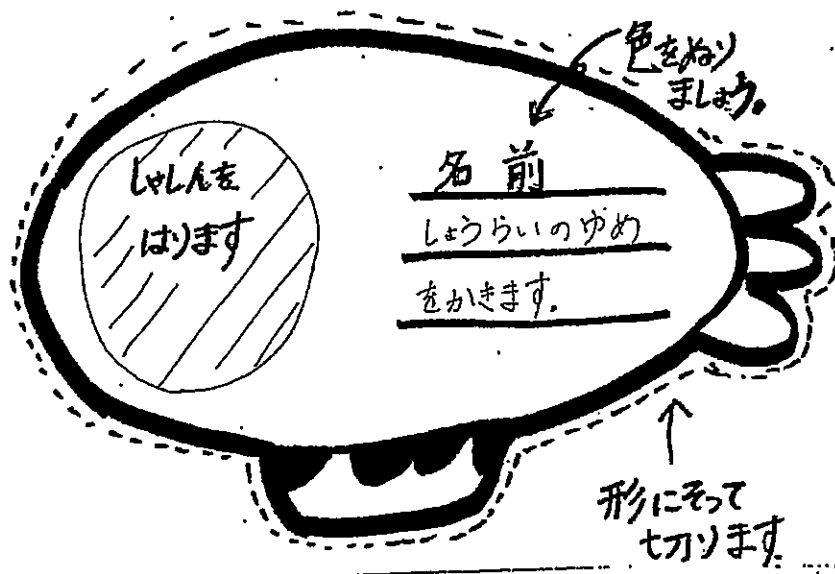 色をぬり
ましょう。
しゃしんを
はります
名前
しょうらいのゆめ
をかきます。
形にそって
切ります